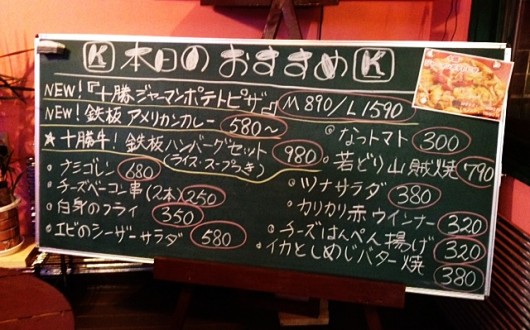 K 本日のおすすめ K
NEW!『十勝ジャーマンポテトピザ』 M890/L1590
NEW! 鉄板アメリカンカレー 580〜
★十勝牛!鉄板ハンバーグセット 980
(ライス・スープつき)
・ナシゴレン 680
・チーズベーコン串(2本) 250
・白身のフライ 350
・エビのシーザーサラダ 580
◎なっトマト 300
・若どり山賊焼 790
・ツナサラダ 380
・カリカリ赤ウインナー 320
・チーズはんぺん揚げ 320
・イカとしめじバター焼 380